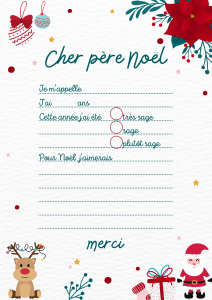 Cher père Noël
Je m'appelle
J'ai ans
Cette année j'ai été très sage
sage
plutôt sage
Pour Noël j'aimerais
merci